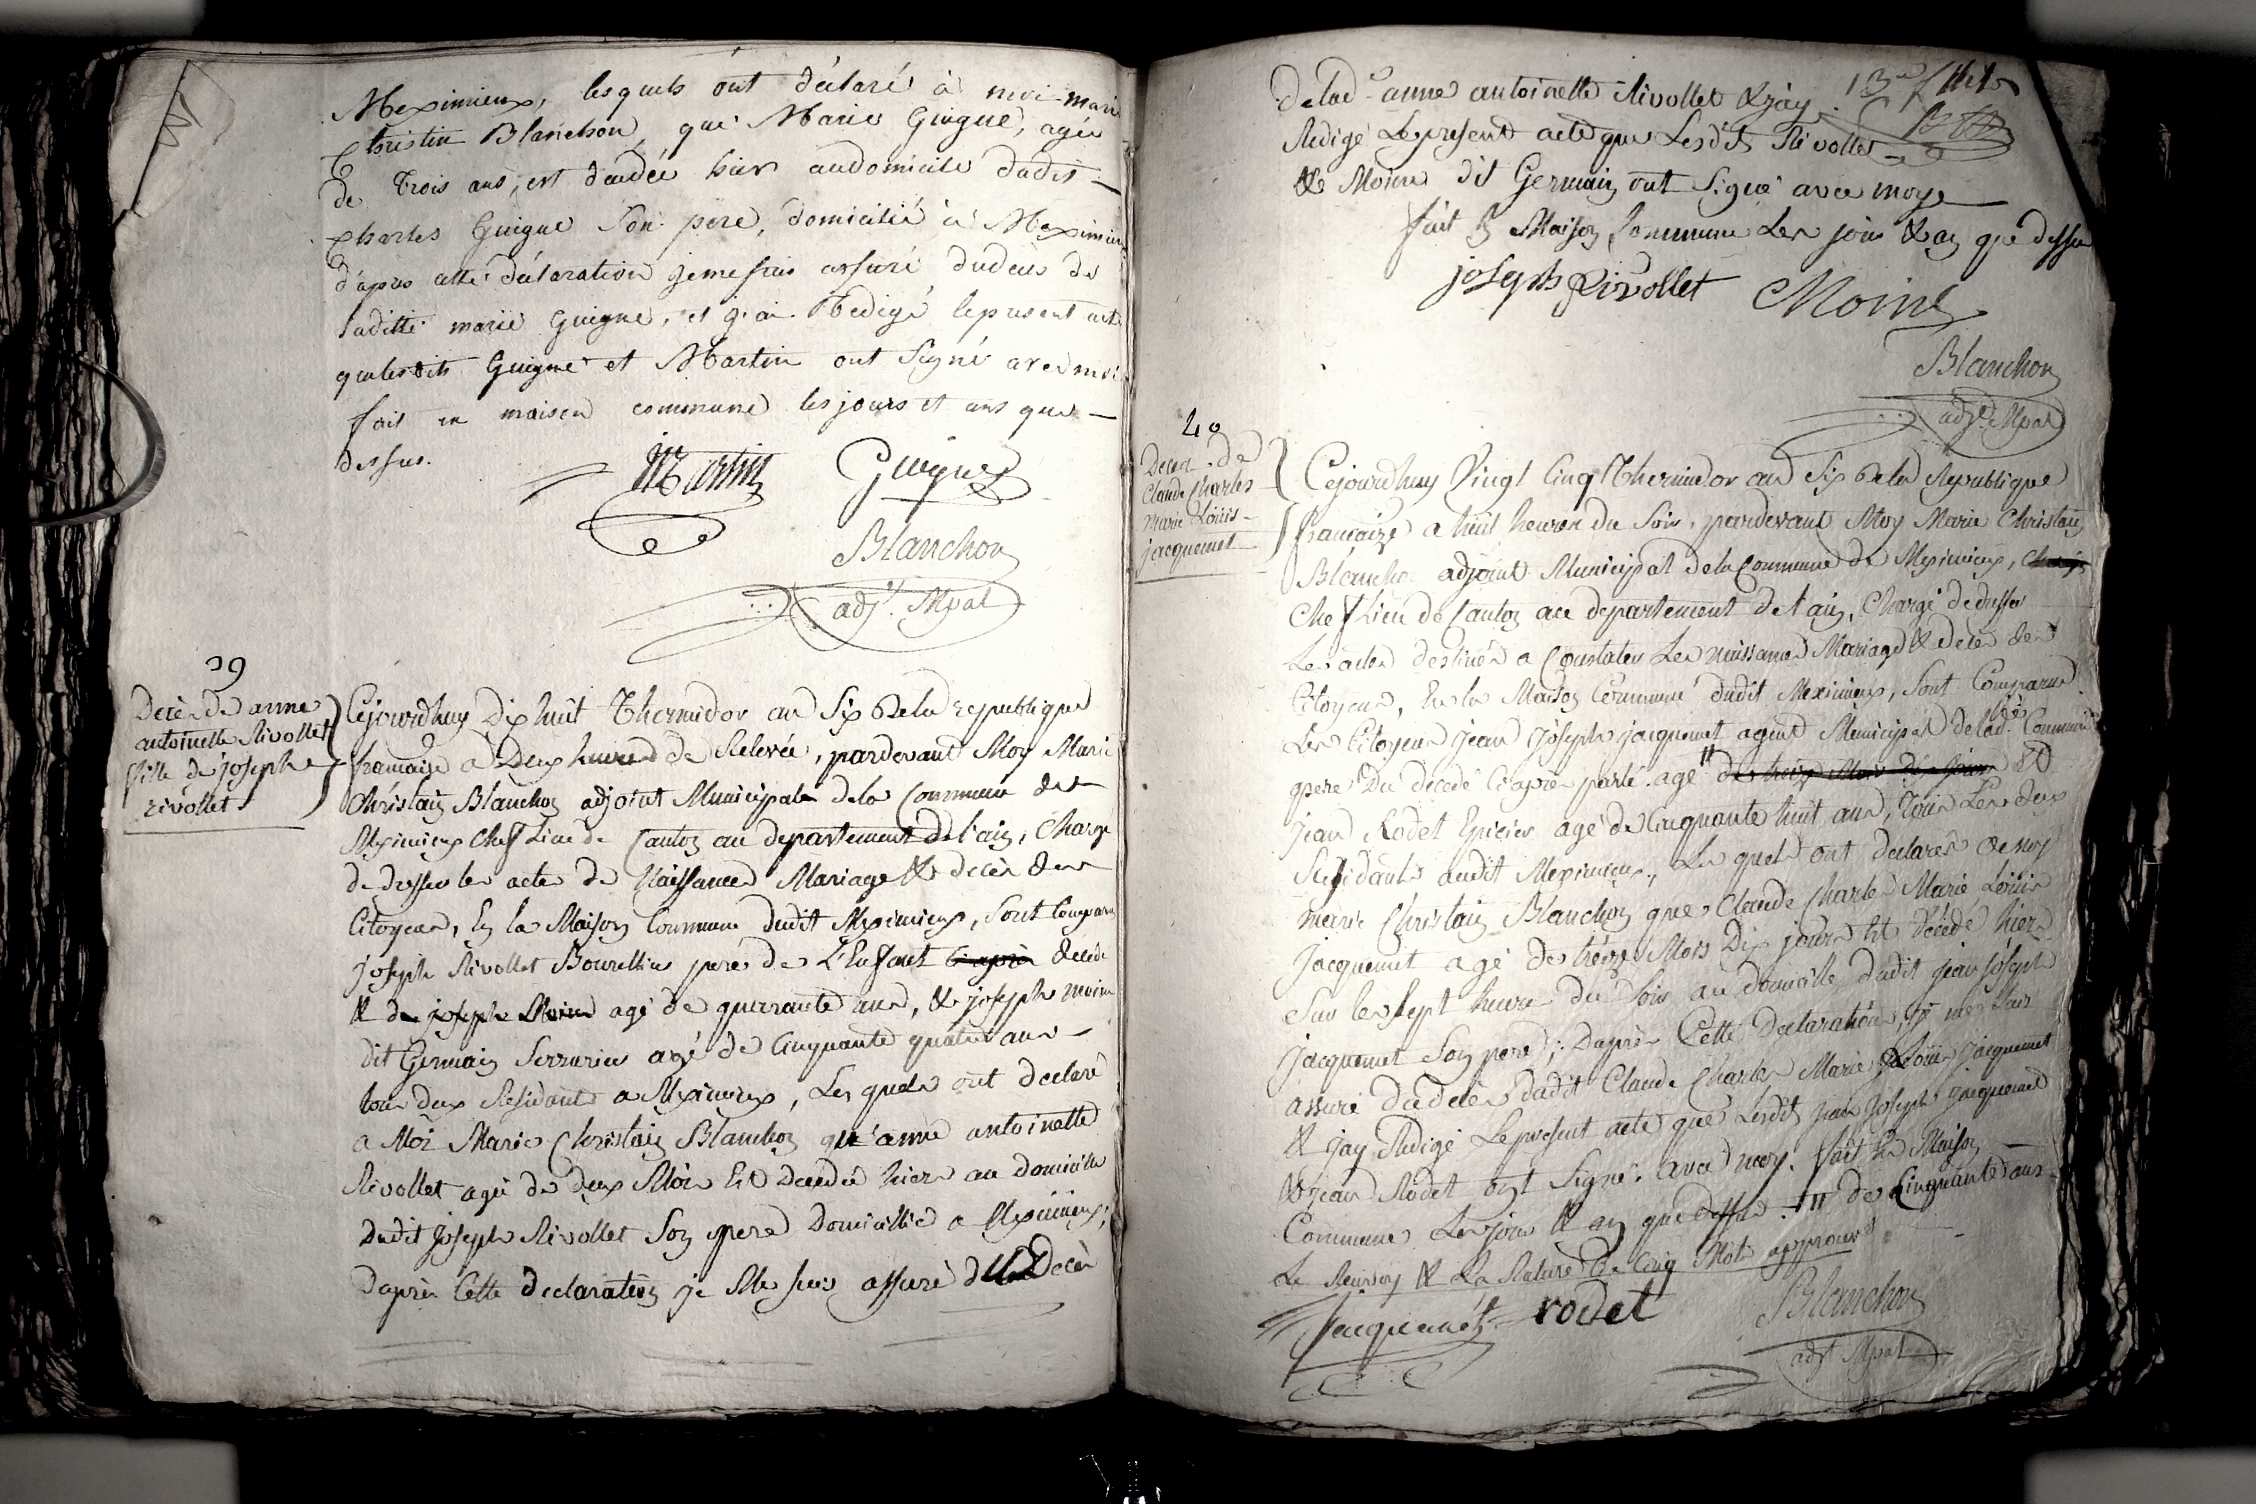 Meximieux, lesquels ont déclaré à moi marie
Christin Blanchon, que Marie Guigue, agée
de trois ans, est décédée hier audomicile dudit
Charles Guigue Son pere, domicilié à Meximieux
d'apres cette déclaration jeme suis assuré dudecès de
laditte marie Guigue, et j'ai redigé lepresent acte
quelesdits Guigue et Martin ont Signé avec moi
fait en maison commune les jours et ans que
dessus.
Martin Guigue
Blanchon
adjt. Mpal
39
Decès de anne
antoinette Rivollet
fille de joseph
rivollet
Cejourdhuy Dix huit Thermidor an Six Dela republique
francaise a Deux heures de Relevée, pardevant Moy Marie
Christain Blanchon adjoint Municipale dela Commune de
Meximieux Chef Lieu de Canton au departement de l'ain, Chargé
de dresser les actes de Naissances Mariage & decès des
Citoyens, En la Maison Commune dudit Meximieux, Sont Comparu
joseph Rivollet Bourellier pere de L'Enfant Ci après decédé
& de joseph Moine agé de quarante ans, & joseph moine
dit Germain Serrurier agé de Cinquante quatre ans
tous deux Residants a Meximieux, Les quels ont declaré
a Moi Marie Christain Blanchon qu'anne antoinette
Rivollet agée de deux Mois Est Decedée hier au domicille
dudit Joseph Rivollet Son pere Domicillié a Meximieux,
Daprès Cette declaration je Me suis assuré du Decès
delad. anne antoinette Rivollet & jay
Redigé Lepresent acte que Lesdits Rivollet
& Moine dit Germain ont Signé avec moy
fait En Maison Commune Les jour & an que dessus
joseph Rivollet Moine
Blanchon
adjt. Mpal
40
Decès de
Claude Charles
Marie Louis
jacquemet
Cejourdhuy Vingt Cinq Thermidor an Six Dela Republique
francaize a huit heures du Soir, pardevant Moy Marie Christain
Blancho adjoint Municipal dela Commune de Meximieux,
Chef Lieu de Canton au departement de l'ain, Chargé de dresser
Les actes destinés a Constater Les naissances Mariage & decès des
Citoyens, En la Maison Commune dudit Meximieux, Sont Comparus
Les Citoyens jean joseph jacquemet agent Municipal delad. Commune
pere Du decedé Ciaprès parlé agé de treize Mois dix jours Et
jean Rodet Epicier agé de Cinquante huit ans, Tous Les deux
Residants audit Meximieux, Les quels ont declarés a moy
marie Christain Blanchon que Claude Charles Marie Louis
Jacquemet agé de treize Mois Dix jours Est Décédé hier
Sur les sept heure du Soir au domicille dudit jean joseph
jacquemet Son pere; Daprès Cette Declaration, je me suis
assuré dudecès dudit Claude Charles Marie Louis jacquemet
& jay Redigé Lepresent acte que Lesdits jean joseph jacquemet
& jean Rodet ont Signé avec moy. fait En Maison
Commune Les jour & an que dessus. # de Cinquante ans
Le Renvoy & La Rature de Cinq Mots approuvés
jacquemet rodet Blanchon
adjt Mpal